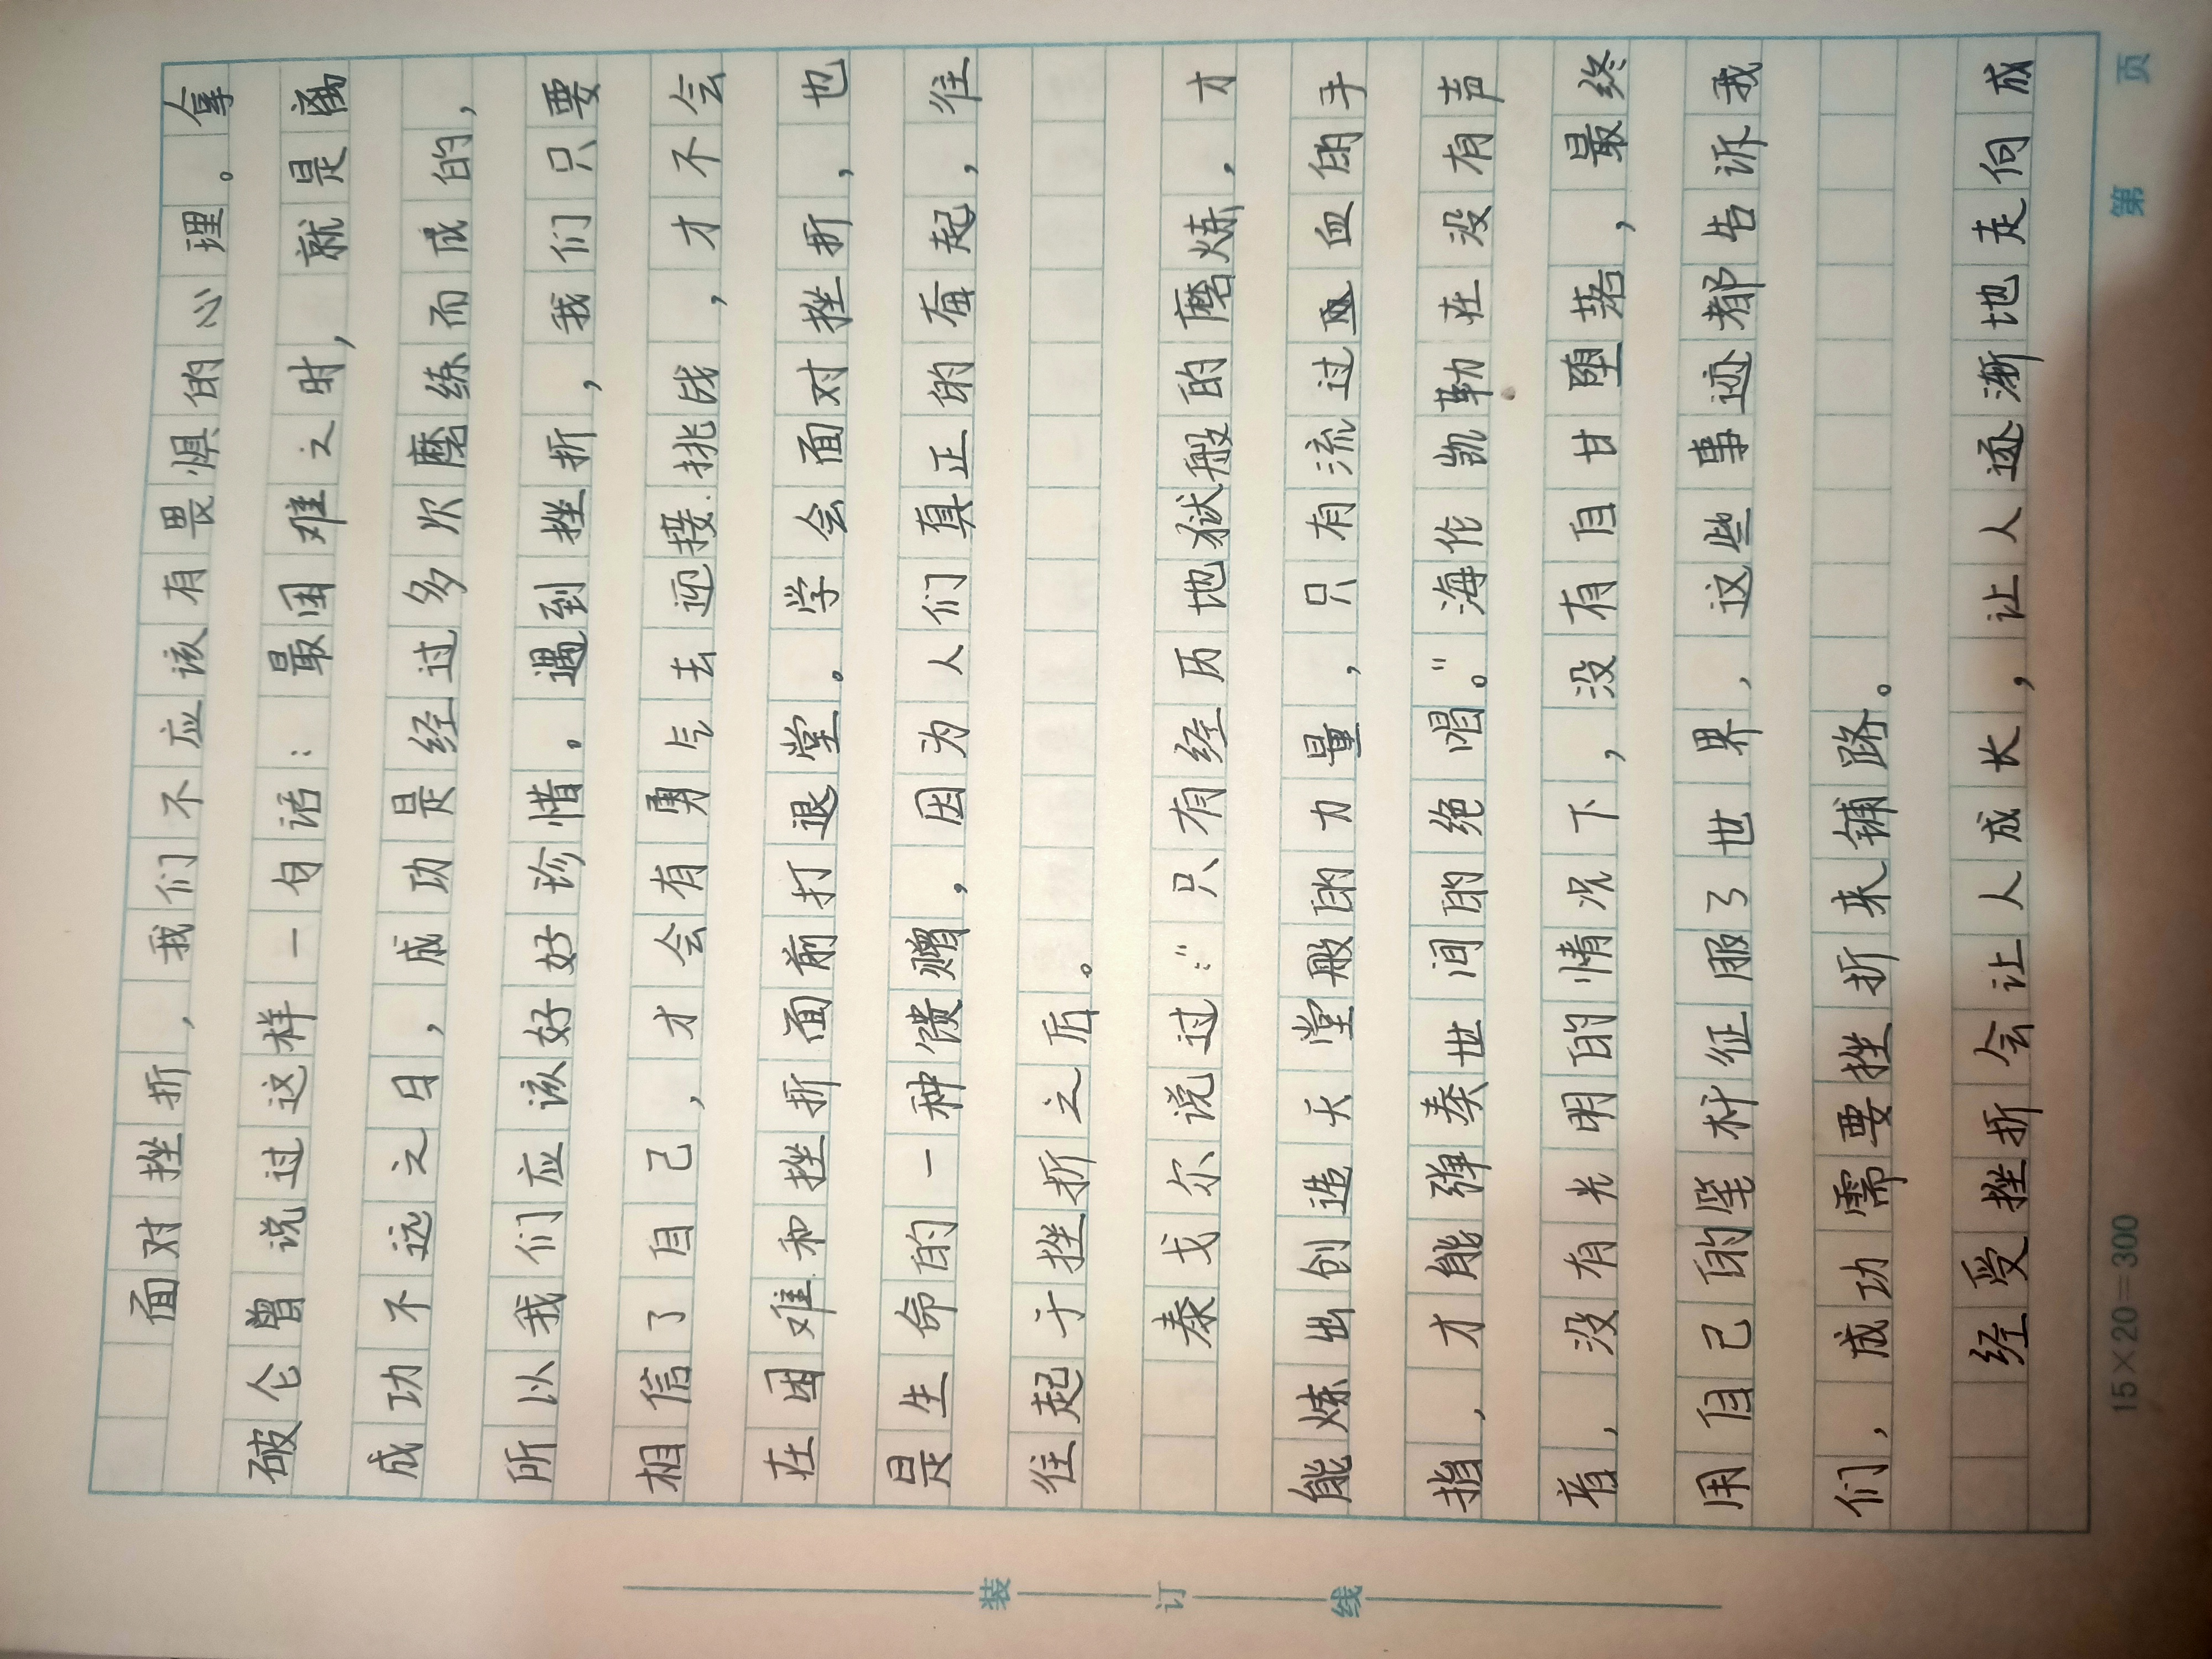 面对挫折,我们不应该有畏惧的心理。拿
破仑曾说过这样一句话:最困难之时,就是离
成功不远之日,成功是经过多次磨练而成的,
所以我们应该好好珍惜。遇到挫折,我们只要
相信了自己,才会有勇气去迎接挑战,才不会
在困难和挫折面前打退堂。学会面对挫折,也
是生命的一种馈赠,因为人们真正的奋起,往
往起于挫折之后。
泰戈尔说过:“只有经历地狱般的磨炼,才
能炼出创造天堂般的力量,只有流过血的手
指,才能弹奏世间的绝唱。”海伦凯勒在没有声
音,没有光明的情况下,没有自甘堕落,最终
用自己的坚朴征服了世界,这些事迹都告诉我
们,成功需要挫折来铺路。
经受挫折会让人成长,让人逐渐地走向成
15×20=300
第 页
装订线